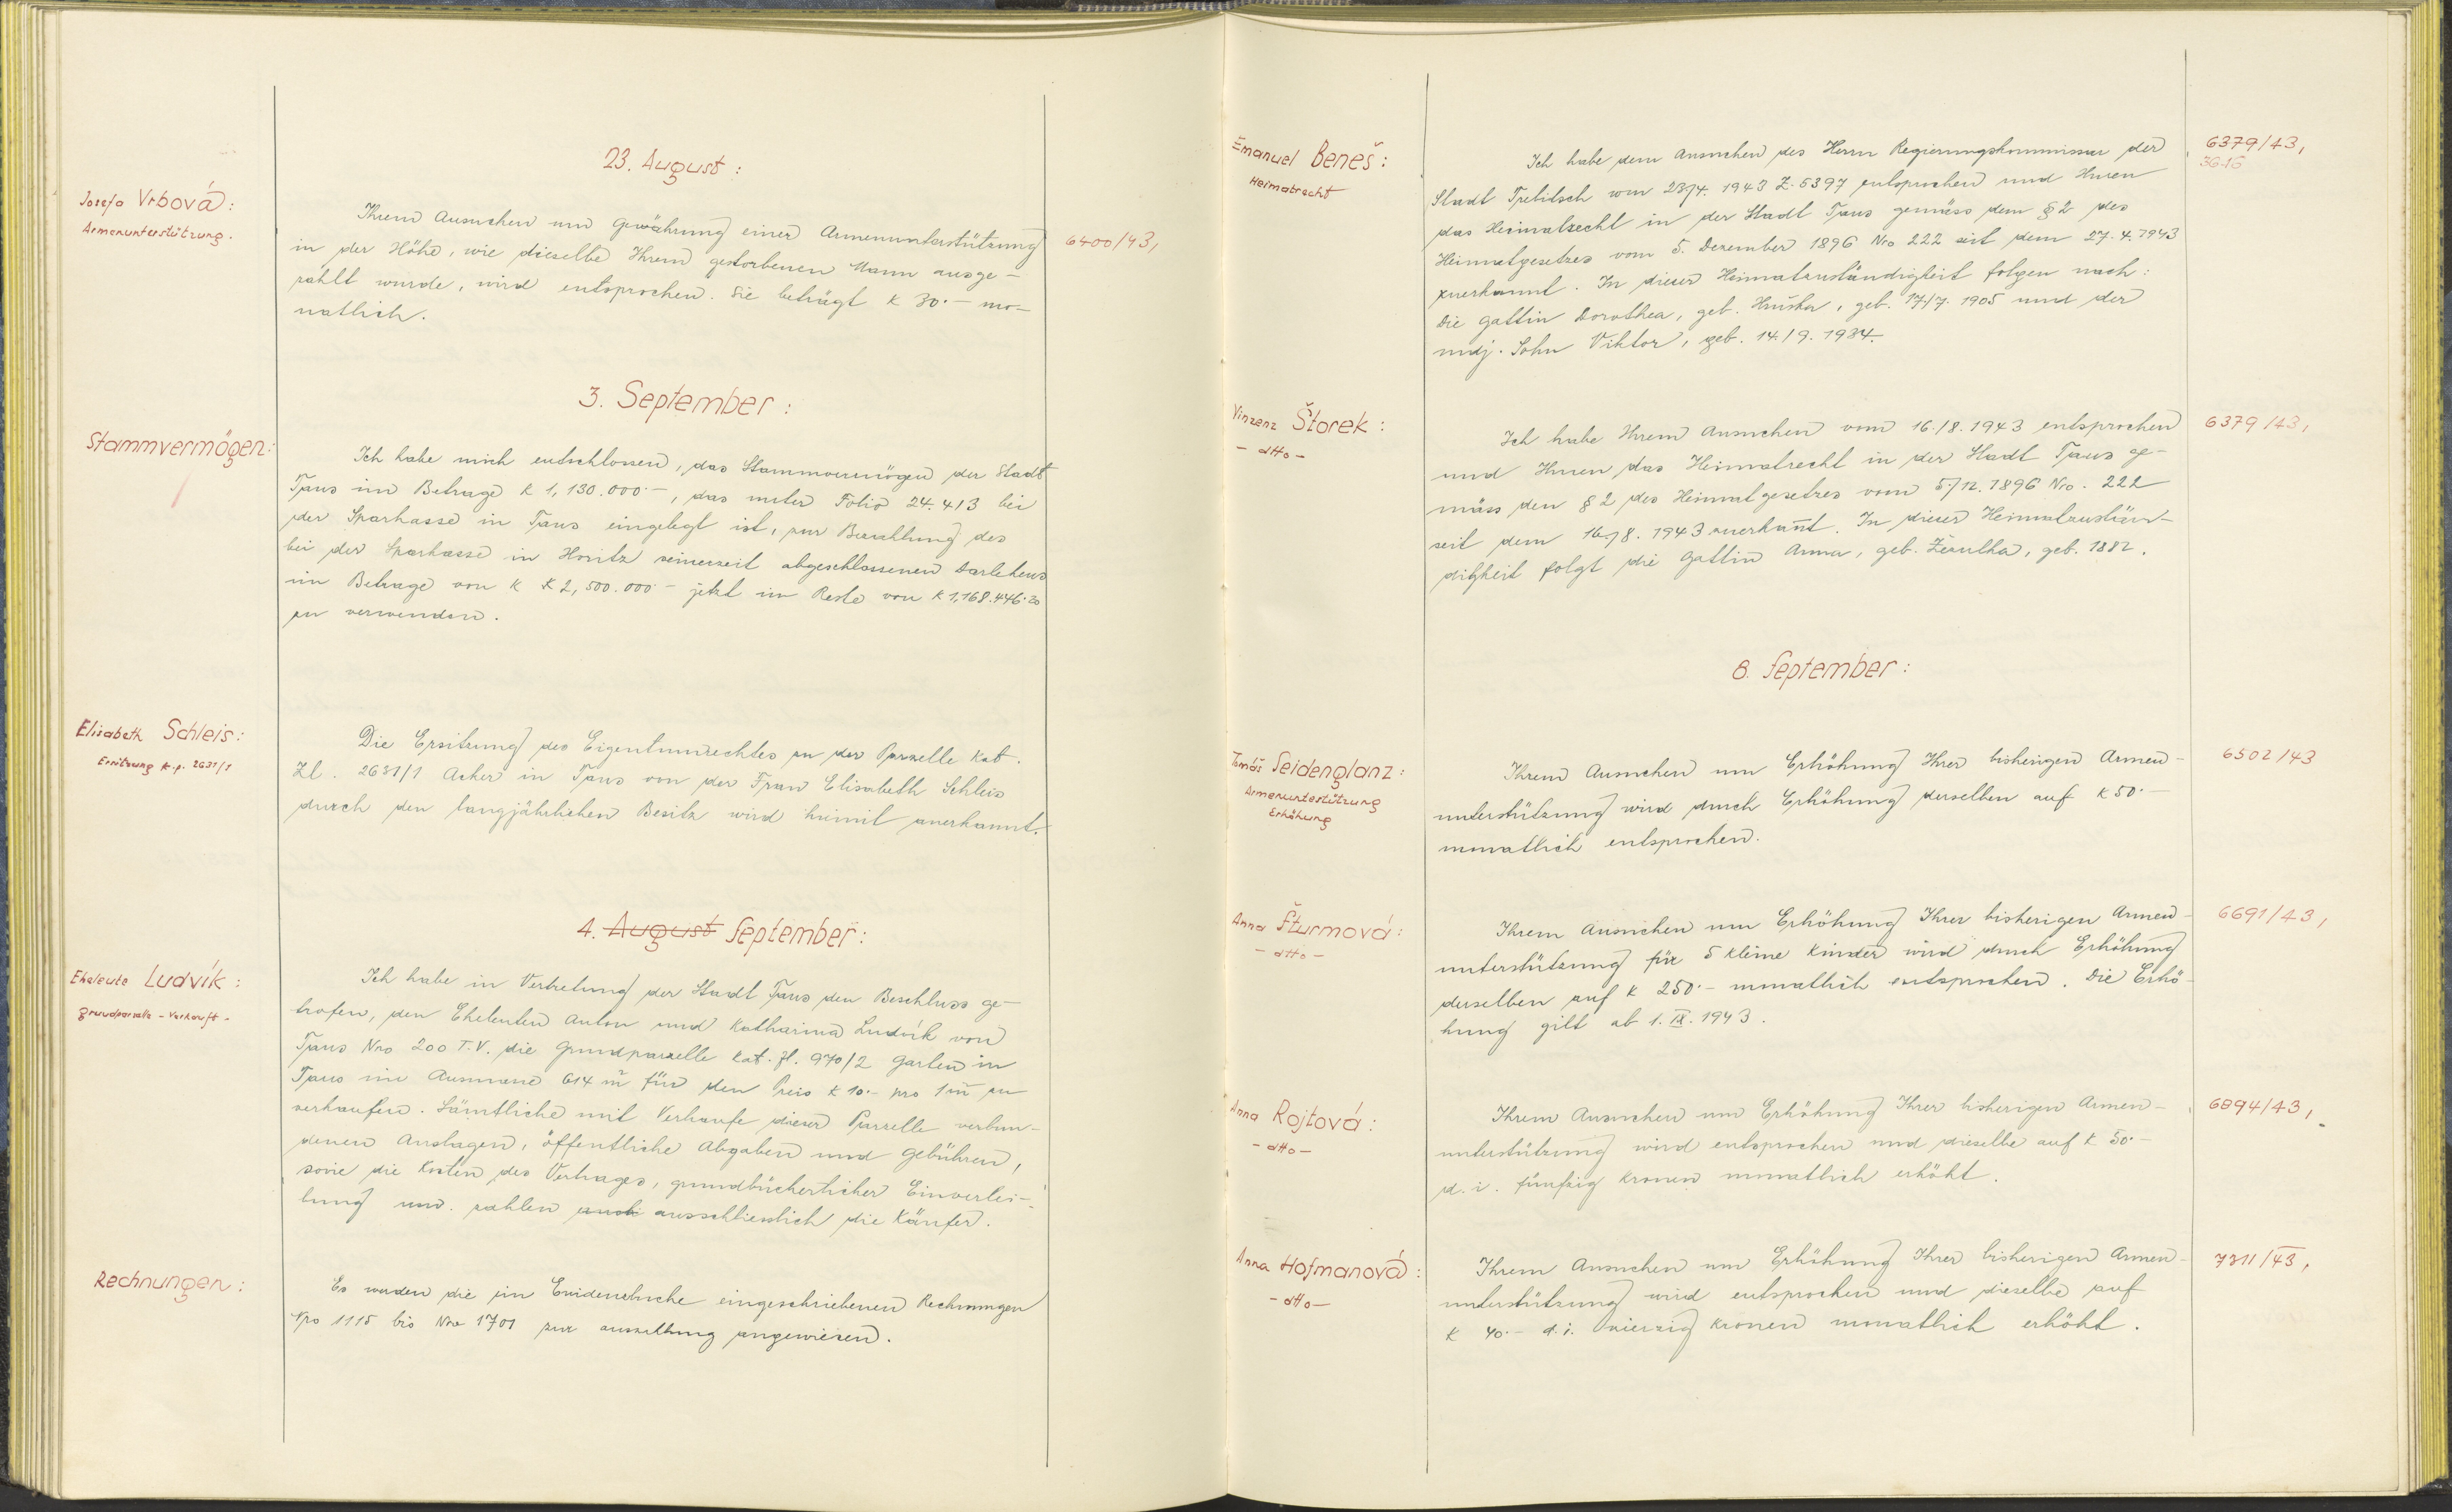 23. August:
Josefa Vrbová:
Armenunterstützung.
Ihrem Ansuchen um Gewährung einer Armenunterstützung
6400/43,
in der Höhe, wie dieselbe Ihrem gestorbenen Mann ausge-
zahlt wurde, wird entsprochen. Sie beträgt K 30·- mo-
natlich.
3. September:
Stammvermögen:
Ich habe mich entschlossen, das Stammvermögen der Stadt
Taus im Betrage K 1,130.000·-, das unter Folio 24.413 bei
der Sparkasse in Taus eingelegt ist, zur Bezahlung des
bei der Sparkasse in Horitz seinerzeit abgeschlossenen Darlehens
im Betrage von K K 2,500.000·- jetzt im Reste von K 1,168.446·20
zu verwenden.
Elisabeth Schleis:
Ersitzung k.p. 2631/1
Die Ersitzung des Eigentumrechtes zu der Parzelle Kat.
Zl. 2631/1 Acker in Taus von der Frau Elisabeth Schleis
durch den langjährlichen Besitz wird hiemit anerkannt.
4. August September:
Eheleute Ludvík:
Grundparzelle - Verkauf -
Ich habe in Vertretung der Stadt Taus den Beschluss ge-
trofen, den Eheleuten Anton und Katharina Ludvík von
Taus Nro 200 T.V. die Grundparzelle Kat. Zl. 970/2 Garten in
Taus im Ausmasse 614 m² für den Preis K 10·- pro 1 m² zu
verkaufen. Sämtliche mit Verkaufe dieser Parzelle verbun-
denen Auslagen, öffentliche Abgaben und Gebühren,
sowie die Kosten des Vertrages, grundbücherlicher Einverlei-
bung usw. zahlen ausschliesslich die Käufer.
Rechnungen:
Es wurden die im Evidenzbuche eingeschriebenen Rechnungen
Nro 1115 bis Nro 1701 zur auszallung angewiesen.
Emanuel Beneš:
Heimatrecht
Ich habe dem Ansuchen des Herrn Regierungskommissar der
6379/43,
3616
Stadt Trebitsch vom 23/4. 1943 Z. 5397 entsprochen und Ihnen
das Heimatrecht in der Stadt Taus gemäss dem § 2 des
Heimatgesetzes vom 5. Dezember 1896 Nro 222 seit dem 27. 4. 1943
zuerkannt. In dieser Heimatzuständigkeit folgen nach:
die Gattin Dorothea, geb. Hruška, geb. 17/7. 1905 und der
mdj. Sohn Viktor, geb. 14./9. 1934.
Vinzenz Štorek:
- dtto -
Ich habe Ihrem Ansuchen vom 16./8. 1943 entsprochen
6379/43,
und Ihnen das Heimatrecht in der Stadt Taus ge-
mäss den § 2 des Heimatgesetzes vom 5./12. 1896 Nro. 222
seit dem 16./8. 1943 zuerkannt. In dieser Heimatzustän-
digkeit folgt die Gattin Anna, geb. geb. 1882.
8. September:
Tomáš Seidenglanz:
Armenunterstützung
Erhöhung
Ihrem Ansuchen um Erhöhung Ihrer bisherigen Armen-
6502/43
unterstützung wird durch Erhöhung derselben auf K 50·-
monatlich entsprochen.
Anna Šturmová:
- dtto -
Ihrem Ansuchen um Erhöhung Ihrer bisherigen Armen-
6691/43,
unterstützung für 5 kleine Kinder wird durch Erhöhung
derselben auf K 250·- monatlich entsprochen. Die Erhö-
hung gilt ab 1. IX. 1943.
Anna Rojtová:
- dtto -
Ihrem Ansuchen um Erhöhung Ihrer bisherigen Armen-
6894/43,
unterstützung wird entsprochen und dieselbe auf K 50·-
d. i. fünfzig Kronen monatlich erhöht.
Anna Hofmanová:
- dtto -
Ihrem Ansuchen um Erhöhung Ihrer bisherigen Armen-
7311/43,
unterstützung wird entsprochen und dieselbe auf
K 40.- d. i. vierzig Kronen monatlich erhöht.